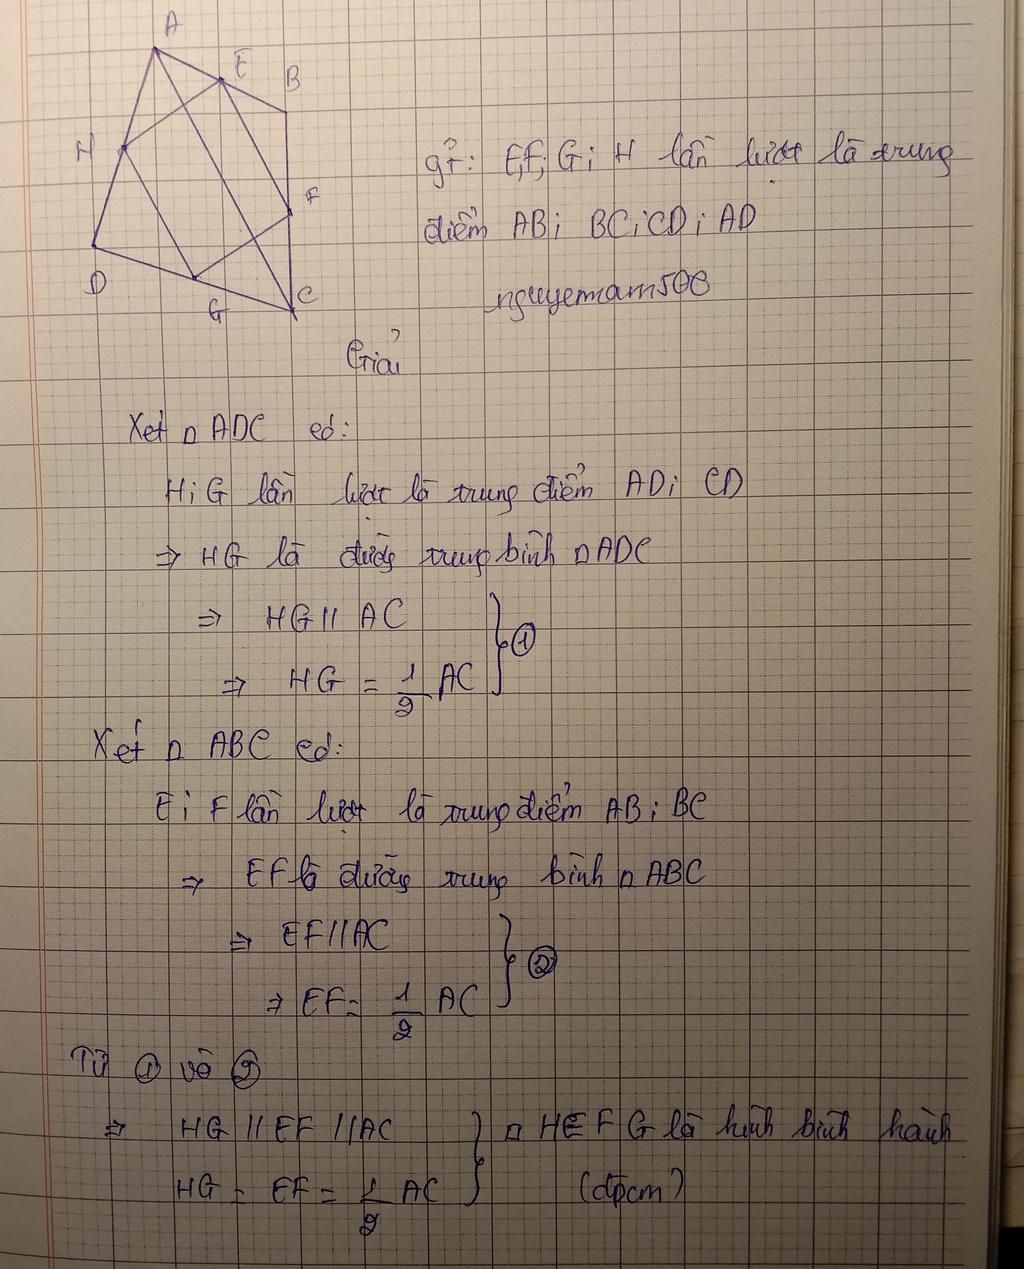 A
E
B
H
gt: E,F; G; H lần lượt là trung
F
điểm AB; BC; CD; AD
D
nguyenam508
G
C
Giải
Xét △ ADC có:
H; G lần lượt là trung điểm AD; CD
⇒ HG là đường trung bình △ADC
⇒ HG // AC
⇒ HG = 1/2 AC } ①
Xét △ ABC có:
E; F lần lượt là trung điểm AB; BC
⇒ EF là đường trung bình △ABC
⇒ EF // AC
⇒ EF = 1/2 AC } ②
Từ ① và ②
⇒ HG // EF // AC } □ HEFG là hình bình hành
HG = EF = 1/2 AC (đpcm)